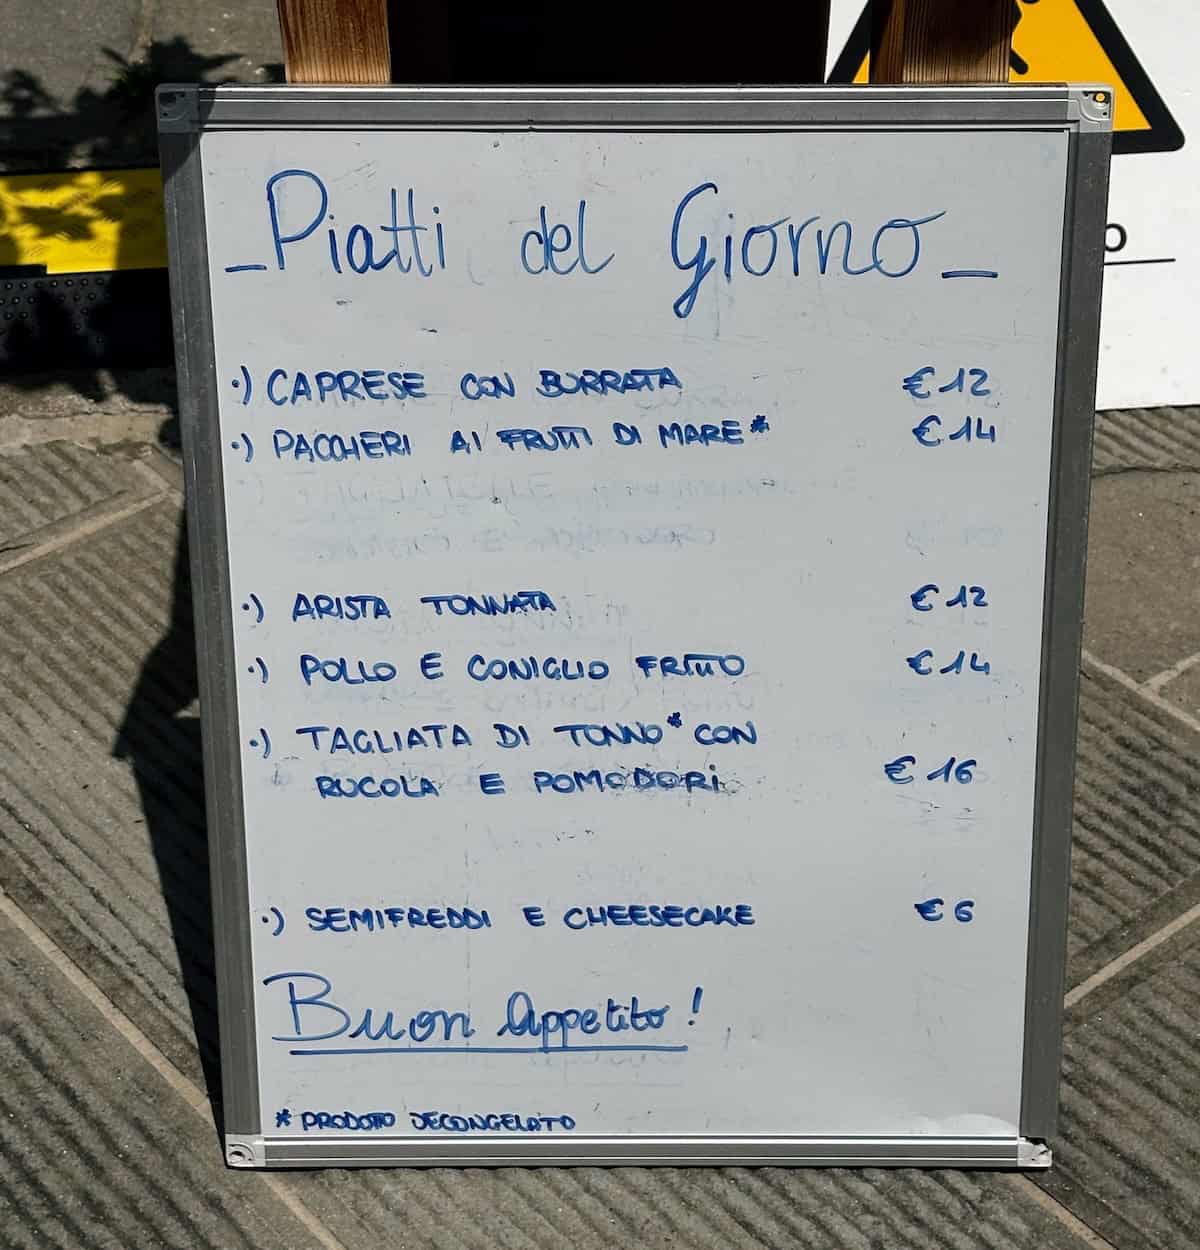 _Piatti del Giorno_
·) CAPRESE CON BURRATA € 12
·) PACCHERI AI FRUTTI DI MARE* € 14
·) ARISTA TONNATA € 12
·) POLLO E CONIGLIO FRITTO € 14
·) TAGLIATA DI TONNO* CON
RUCOLA E POMODORI € 16
·) SEMIFREDDI E CHEESECAKE € 6
Buon Appetito!
* PRODOTTO DECONGELATO